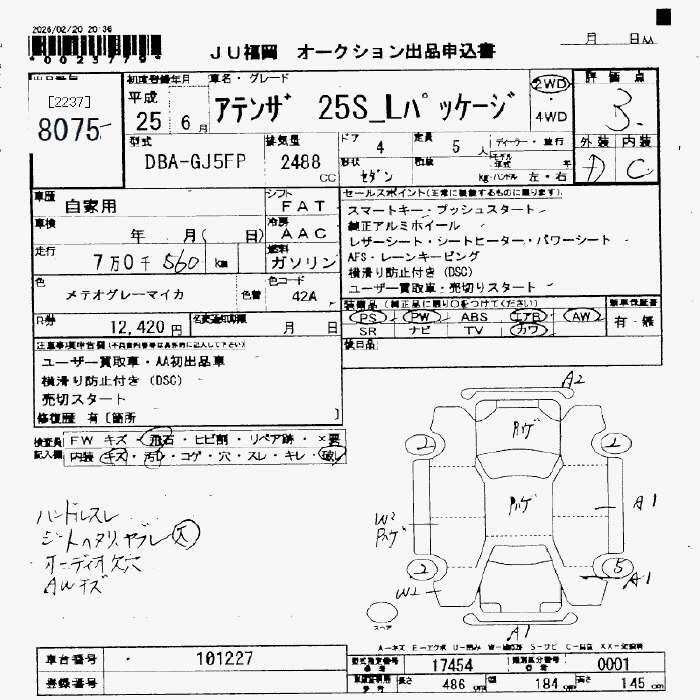 2026/02/20 20:36
*0023779*
JU福岡 オークション出品申込書
月 日
[2237]
8075
初度登録年月
平成
25 6月
車名・グレード
アテンザ 25S_Lパッケージ
2WD
・
4WD
評価点
3
外装 内装
D C
型式
DBA-GJ5FP
排気量
2488
CC
ドア
4
定員
5人
形状
セダン
ディーラー・並行
モデル年式 年
kg ハンドル 左・右
車歴
自家用
シフト
FAT
車検
年 月( 日)
冷房
AAC
走行
7万0千560 km
燃料
ガソリン
色
メテオグレーマイカ
色替
色コード
42A
R券
12,420円
名変通知期限
月 日
セールスポイント(正常に機能するものに限ります)
スマートキー・プッシュスタート
純正アルミホイール
レザーシート・シートヒーター・パワーシート
AFS・レーンキーピング
横滑り防止付き(DSC)
ユーザー買取車・売切りスタート
装備品(純正品に限り○をつけてください)
PS PW ABS エアB AW
SR ナビ TV カワ
新車保証書
有・無
後日品
注意事項申告欄
ユーザー買取車・AA初出品車
横滑り防止付き(DSC)
売切スタート
修復歴 有[箇所 ]
検査員記入欄
FW キズ・飛石・ヒビ割・リペア跡・×要
内装 キズ・汚れ・コゲ・穴・スレ・キレ・破レ
ハンドルスレ
シートヘタリ、ヤブレ 大
オーディオ欠穴
AWキズ
A2
2
2
2
5
A1
A1
A1
W2
W2
スペア
A-キズ E-エクボ U-凹み W-補修跡 S-サビ C-腐食 XX-交換済
車台番号 101227
登録番号
型式指定番号 17454
類別区分番号 0001
長さ 486cm 幅 184cm 高さ 145cm